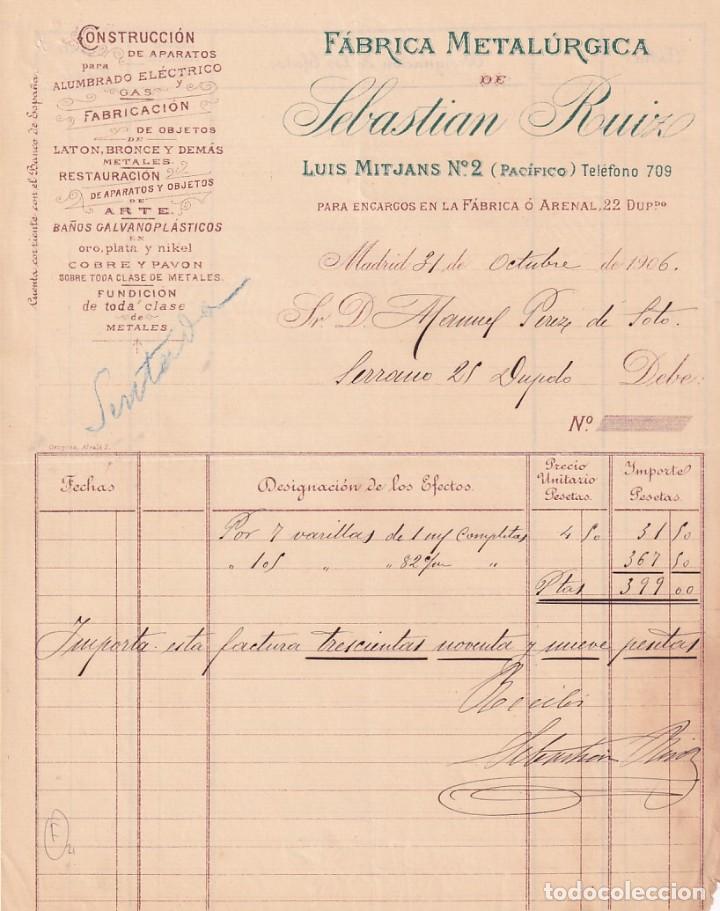 Cuenta corriente con el Banco de España
CONSTRUCCIÓN
DE APARATOS
para
ALUMBRADO ELÉCTRICO
y
GAS
FABRICACIÓN
DE OBJETOS
DE
LATON, BRONCE Y DEMÁS
METALES
RESTAURACIÓN
DE APARATOS Y OBJETOS
DE
ARTE
BAÑOS GALVANOPLÁSTICOS
EN
oro, plata y nikel
COBRE Y PAVON
SOBRE TODA CLASE DE METALES.
FUNDICIÓN
de toda clase
de
METALES
Sentada
FÁBRICA METALÚRGICA
DE
Sebastian Ruiz
LUIS MITJANS Nº 2 (PACÍFICO) Teléfono 709
PARA ENCARGOS EN LA FÁBRICA Ó ARENAL, 22 DUPPº
Madrid 31 de Octubre de 1906.
Sr. D. Manuel Perez de Soto.
Serrano 25 Dupdo Debe:
Nº
Fechas
Designación de los Efectos.
Precio Unitario Pesetas.
Importe Pesetas.
Por 7 varillas de 1 m/ completas 4 50 31 50
" 105 " " 82 c/m " 367 50
Ptas 399 00
Importa esta factura trescientas noventa y nueve pesetas
Recibi
Sebastian Ruiz
F
todocoleccion
todocoleccion.net